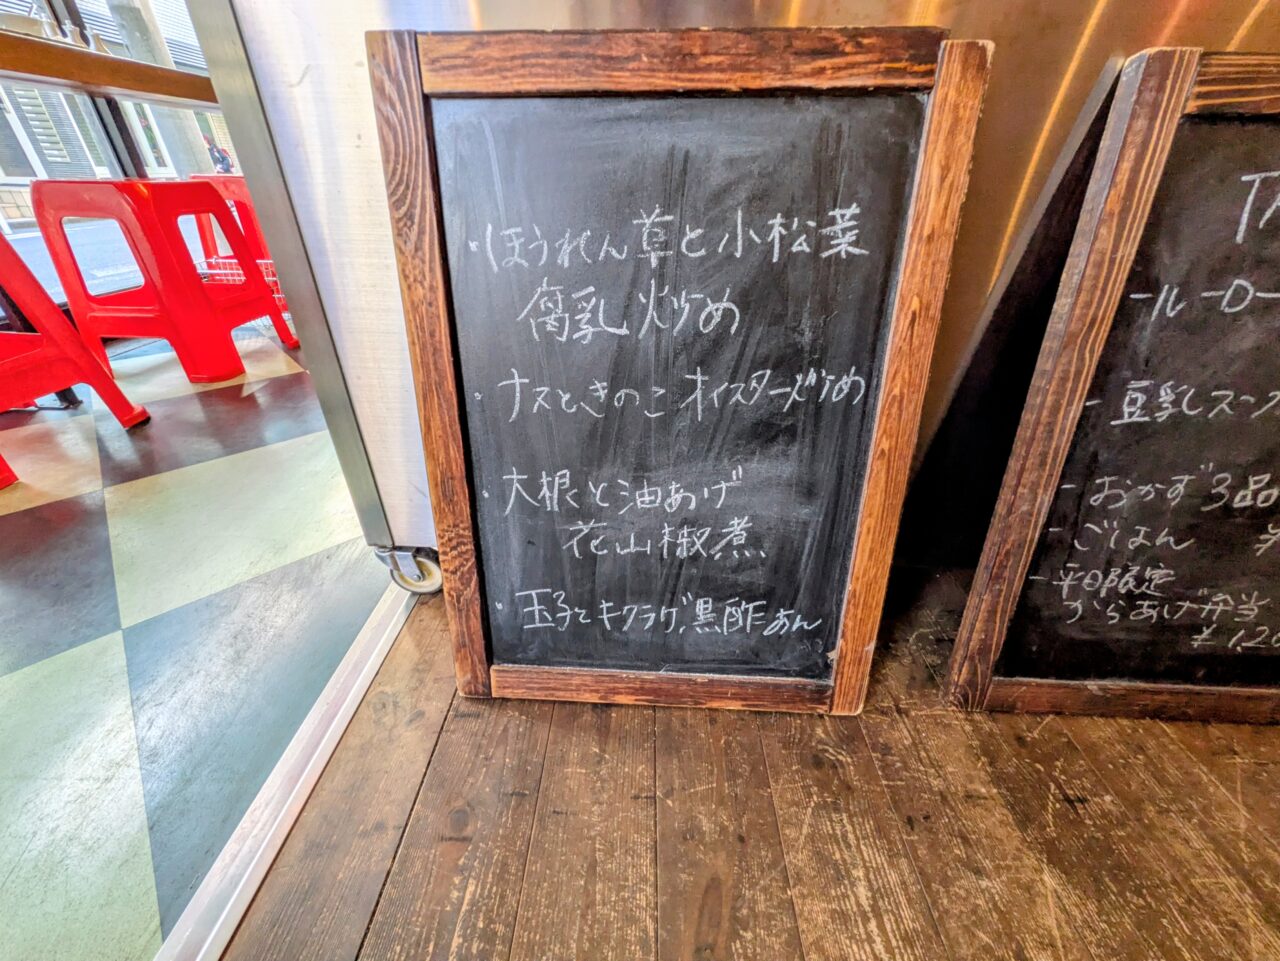 ・ほうれん草と小松菜
腐乳炒め
・ナスときのこオイスター炒め
・大根と油あげ
花山椒煮
・玉子とキクラゲ黒酢あん
TA
-ルーロー
-豆乳スープ
-おかず3品
-ごはん
-平日限定
からあげ弁当